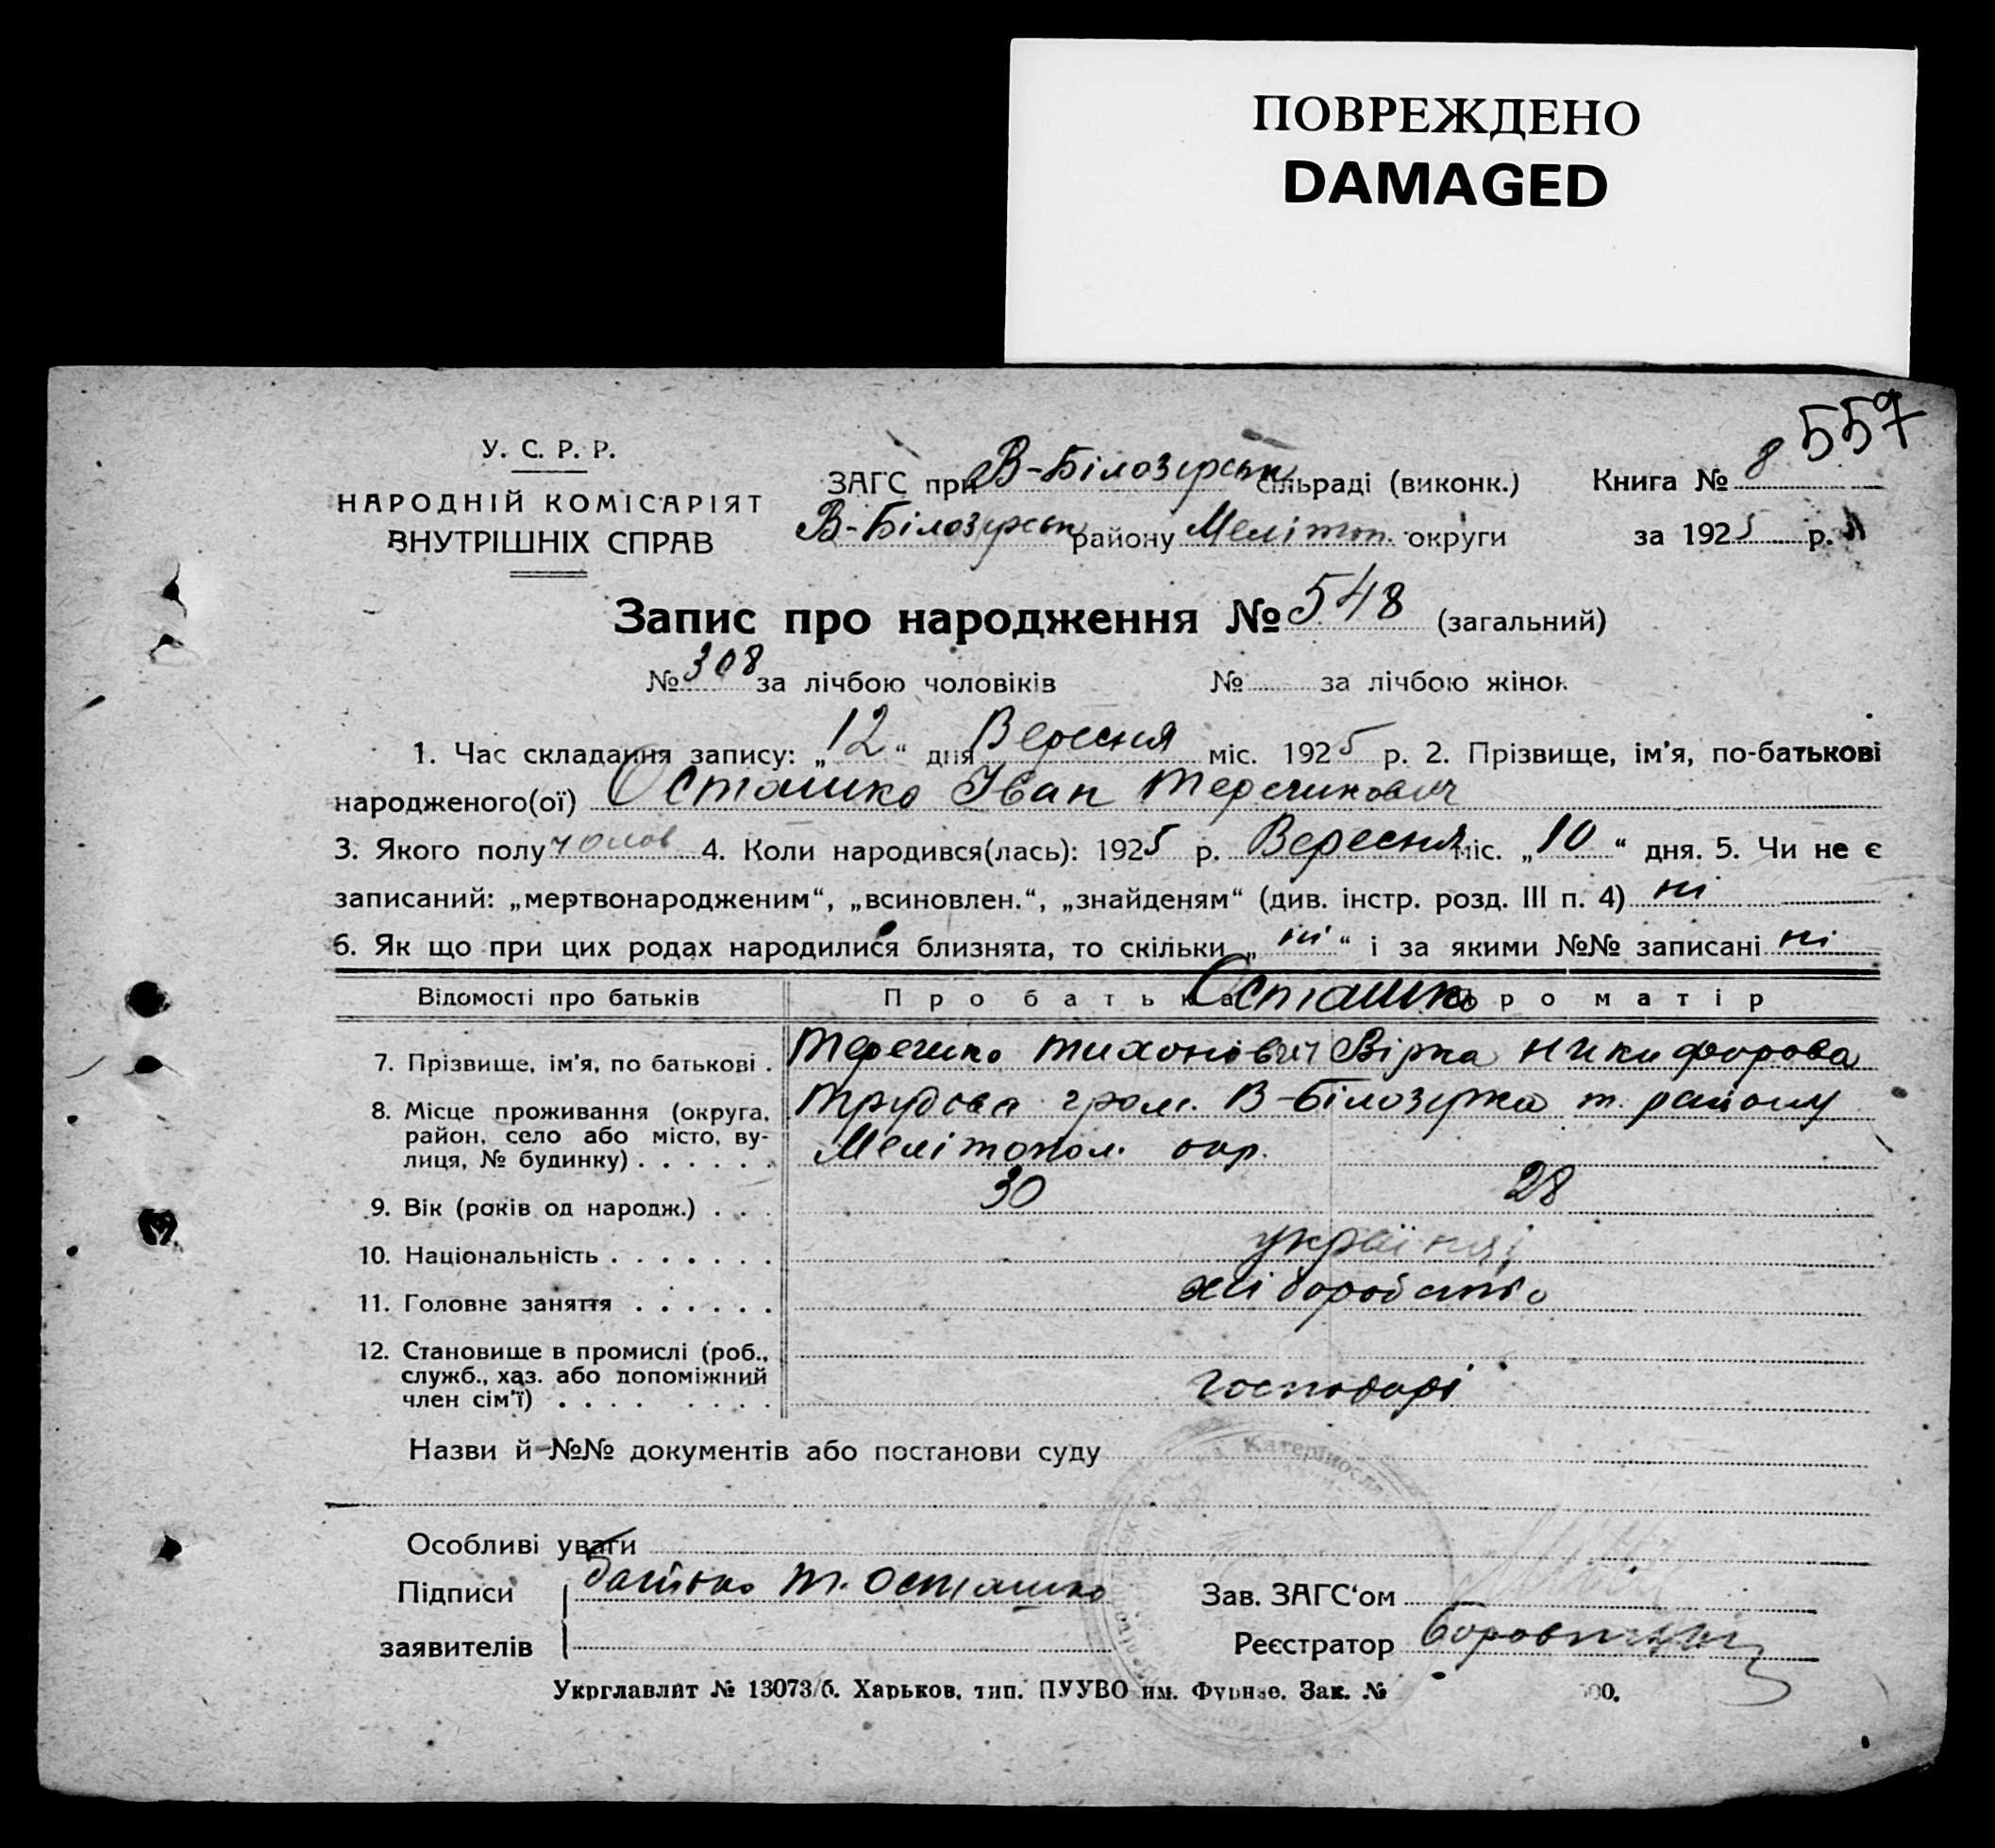 ПОВРЕЖДЕНО
DAMAGED
557
У. С. Р. Р.
НАРОДНІЙ КОМІСАРІЯТ
ВНУТРІШНІХ СПРАВ
ЗАГС при В-Білозерськ сільраді (виконк.)
В-Білозерськ району Мелітоп. округи
Книга № 8
за 1925 р.
Запис про народження № 548 (загальний)
№ 308 за лічбою чоловіків № за лічбою жінок
1. Час складання запису: „12“ дня Вересня міс. 1925 р. 2. Прізвище, ім'я, по-батькові
народженого(ої) Осташко Іван
3. Якого полу чолов 4. Коли народився(лась): 1925 р. Вересня міс. „10“ дня. 5. Чи не є
записаний: „мертвонародженим“, „всиновлен.“, „знайденям“ (див. інстр. розд. III п. 4) ні
6. Як що при цих родах народилися близнята, то скільки „ні“ і за якими №№ записані ні
Відомості про батьків Про батька Осташко Про матір
7. Прізвище, ім'я, по батькові . Терешко Тихонович Вірка Никифорова
8. Місце проживання (округа, Трудова гром. В-Білозерка т. району
район, село або місто, ву- Мелітопол. окр.
лиця, № будинку) . . . . . .
9. Вік (років од народж.) . . . 30 28
10. Національність . . . . . . . українці
11. Головне заняття . . . . . . хліборобство
12. Становище в промислі (роб.,
служб., хаз. або допоміжний господарі
член сім'ї) . . . . . . . .
Назви й №№ документів або постанови суду
Катериносла
Особливі уваги
Підписи батько Т. Осташко
заявителів
Зав. ЗАГС'ом
Реєстратор
Укрглавліт № 13073/б. Харьков, тип. ПУУВО им. Фрунзе. Зак. № 00.